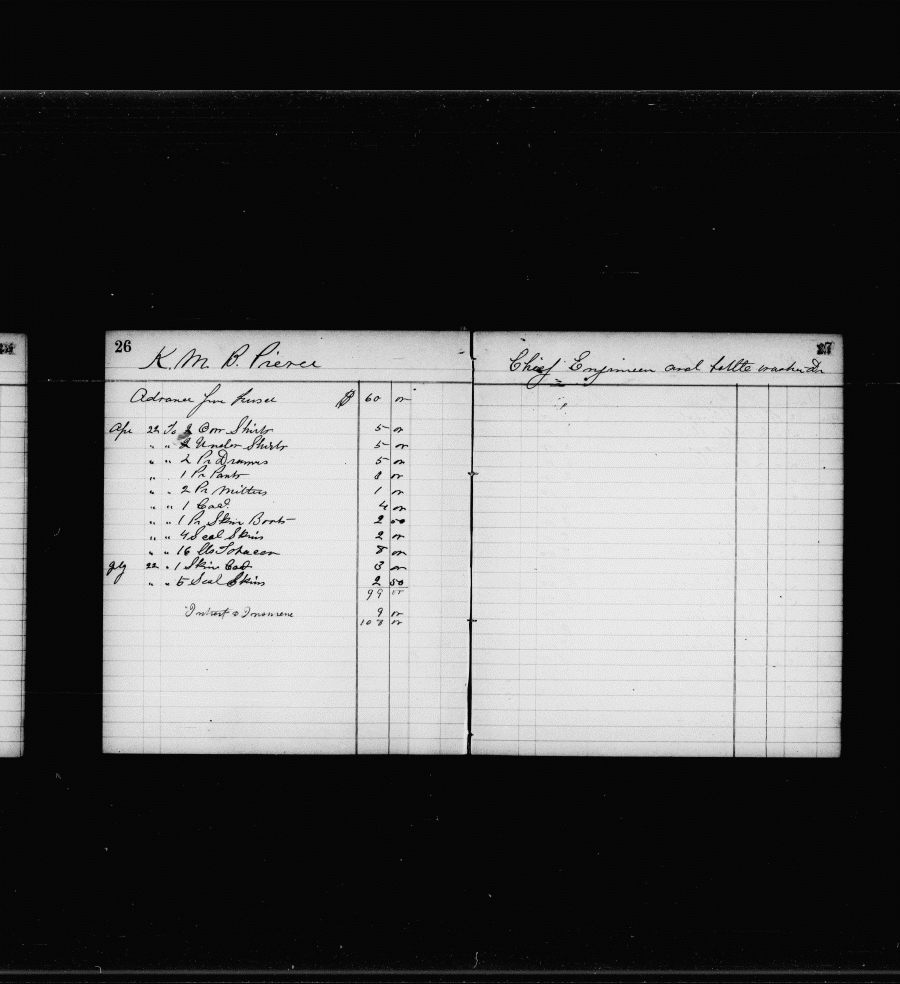 26
K. M. B. Pierce
Advance from Pursel $ 60 00
Apr 22 To 2 Cor Shirts 5 00
" " 2 Under Shirts 5 00
" " 2 Pr Drawers 5 00
" . 1 Pr Pants 8 00
" " 2 Pr Mittens 1 00
" " 1 Coat 4 00
" " 1 Pr Skin Boots 2 00
" " 4 Seal Skins 2 00
" " 16 lbs Tobacco 8 00
22 " 1 Skin 3 00
" " 5 Seal Skins 2 50
99 00
Interest & Insurance 9 00
108 00
27
Chief Engineer and